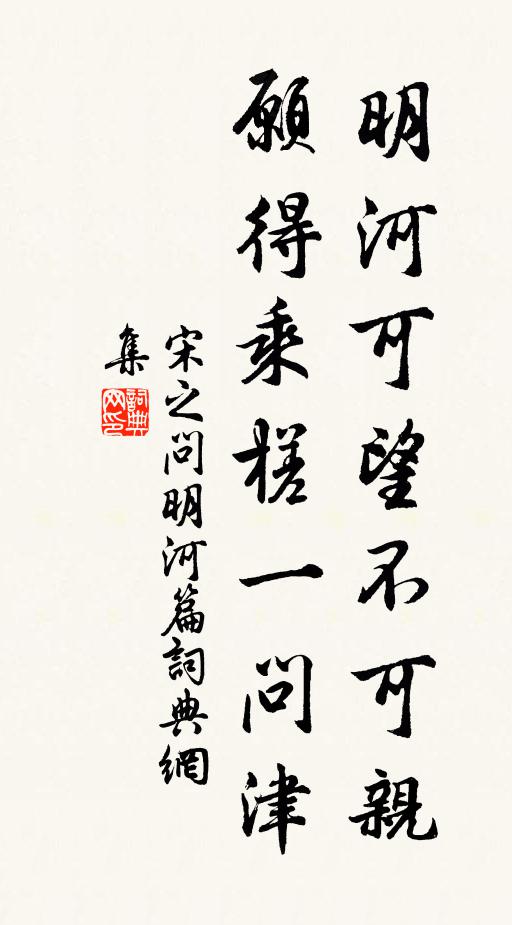 明河可望不可親
願得乘槎一問津
宋之問明河篇詞典網
集
詞典
网印